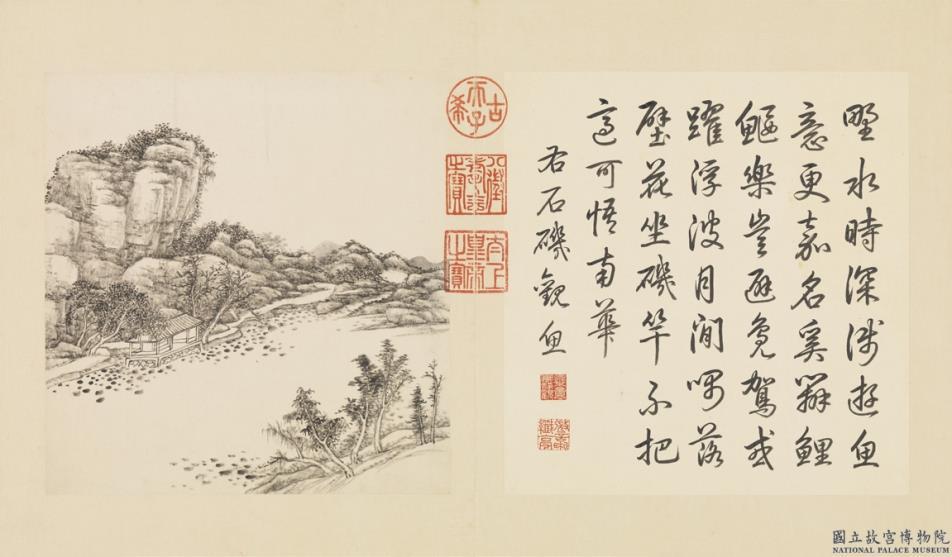 野水時深淺遊魚
意更嘉名奚辨鯉
鰋樂豈避鳧鴐或
躍浮波月閒喁落
壁花坐磯竿不把
適可悟南華
右石磯觀魚
古希天子
八徵耄念之寶
太上皇帝之寶
國立故宮博物院
NATIONAL PALACE MUSEUM